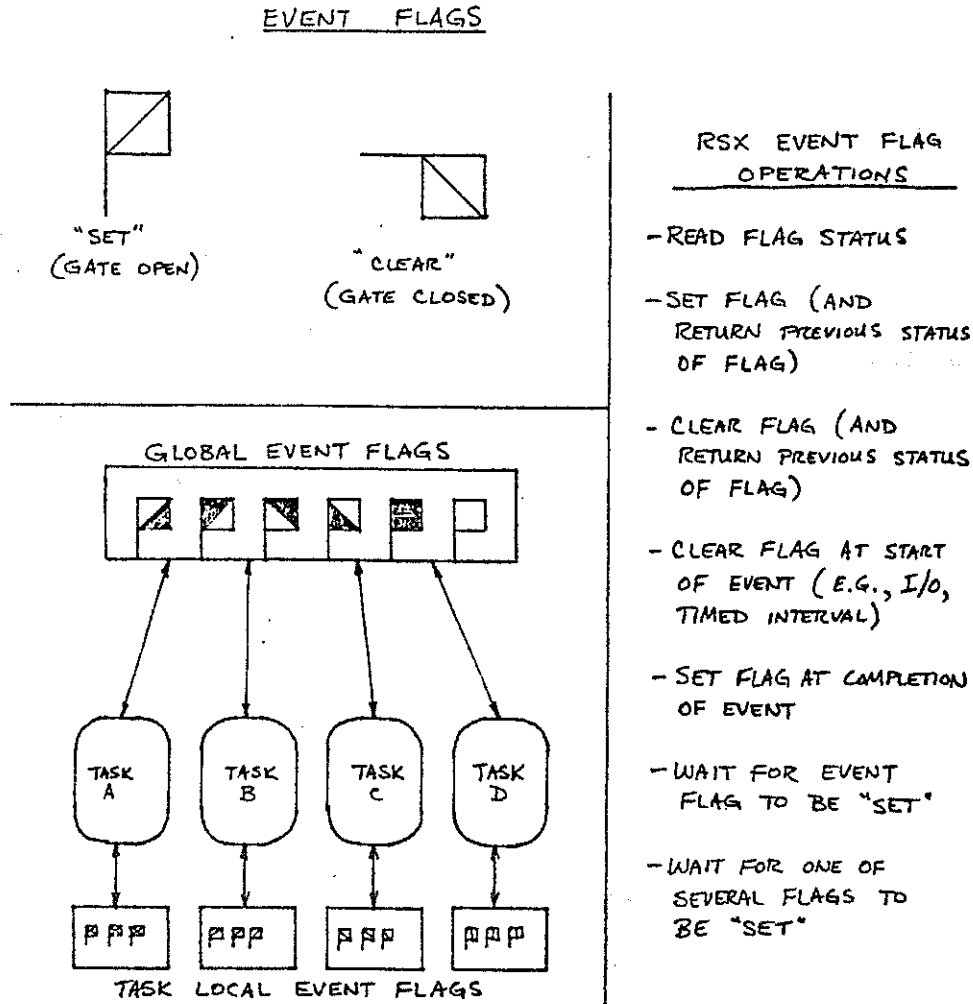 EVENT FLAGS
"SET"
(GATE OPEN)
"CLEAR"
(GATE CLOSED)
GLOBAL EVENT FLAGS
TASK
A
TASK
B
TASK
C
TASK
D
TASK LOCAL EVENT FLAGS
RSX EVENT FLAG
OPERATIONS
- READ FLAG STATUS
- SET FLAG (AND
RETURN PREVIOUS STATUS
OF FLAG)
- CLEAR FLAG (AND
RETURN PREVIOUS STATUS
OF FLAG)
- CLEAR FLAG AT START
OF EVENT (E.G., I/O,
TIMED INTERVAL)
- SET FLAG AT COMPLETION
OF EVENT
- WAIT FOR EVENT
FLAG TO BE "SET"
- WAIT FOR ONE OF
SEVERAL FLAGS TO
BE "SET"